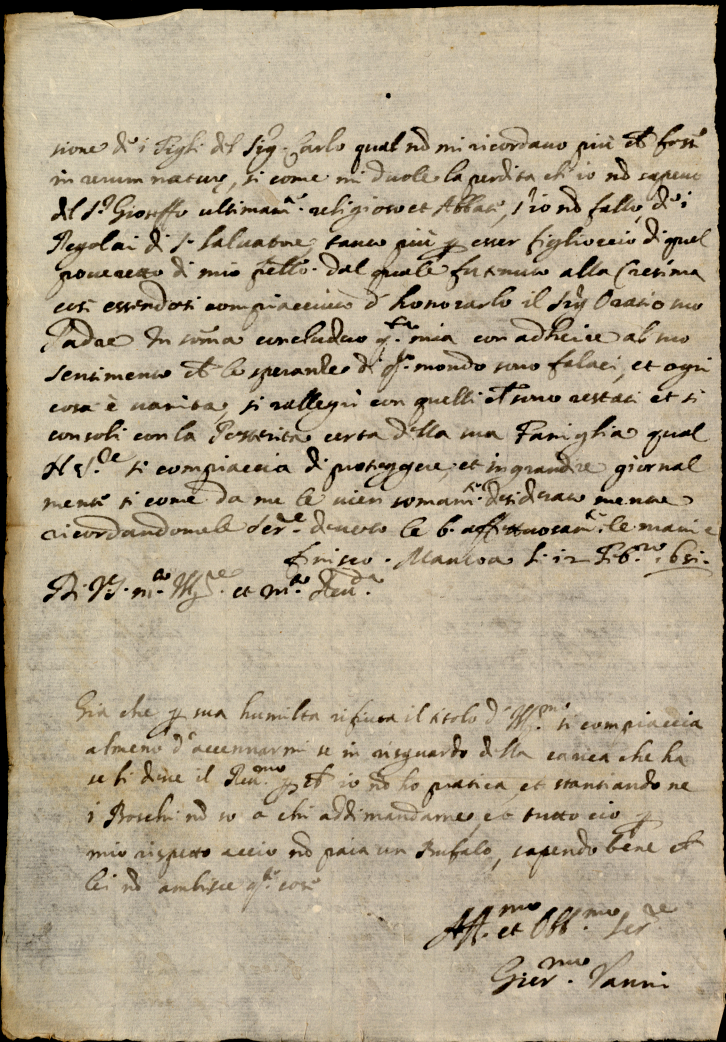 sione de i Figli del Sig. Carlo qual nō mi ricordavo più ch fosse
in rerum naturę, si come mi duole la perdita ch' io nō sapevo
del S.r Gioseffo ultimam.te religioso et Abbate, s' io nō fallo, de i
Regolai di S. Salvatore tanto più p esser figlioccio di quel
poveretto di mio frēllo dal quale fu tenuto alla Cresima
così essendosi compiacciuto d' honorarlo il Sig Oratio suo
Padre. In sōma concludero q.ta mia con adherire al suo
sentimento ch le speranze di q.o mondo sono falaci, et ogni
cosa è vanita, si rallegri con quelli ch sono restati et si
consoli con la Posterita certa della sua Famiglia qual
N. S.re si compiaccia di proteggere, et ingrandire giornal
mente si come da me le vien somam.te desiderato mentre
ricordandomele Ser.re devoto le b. affettuosam.te le mani e
finisco. Mantova li 12 Feb.ro 1651.
Di V. S. m.to Ill.re et m.to Rev.da
Gia che p sua humilta rifiuta il titolo d' Ill.mo si compiaccia
almeno d' accennarmi se in risguardo della carica che ha
se li deve il Rev.mo p ch io nō ho pratica, et stantiando ne
i Boschi nō so a chi addimandarne, et tutto cio p
mio rispetto accio nō paia un Bufalo, sapendo bene ch
lei nō ambisce q.e cose
Aff.mo et Obb.mo Ser.re
Gier.mo Vanni